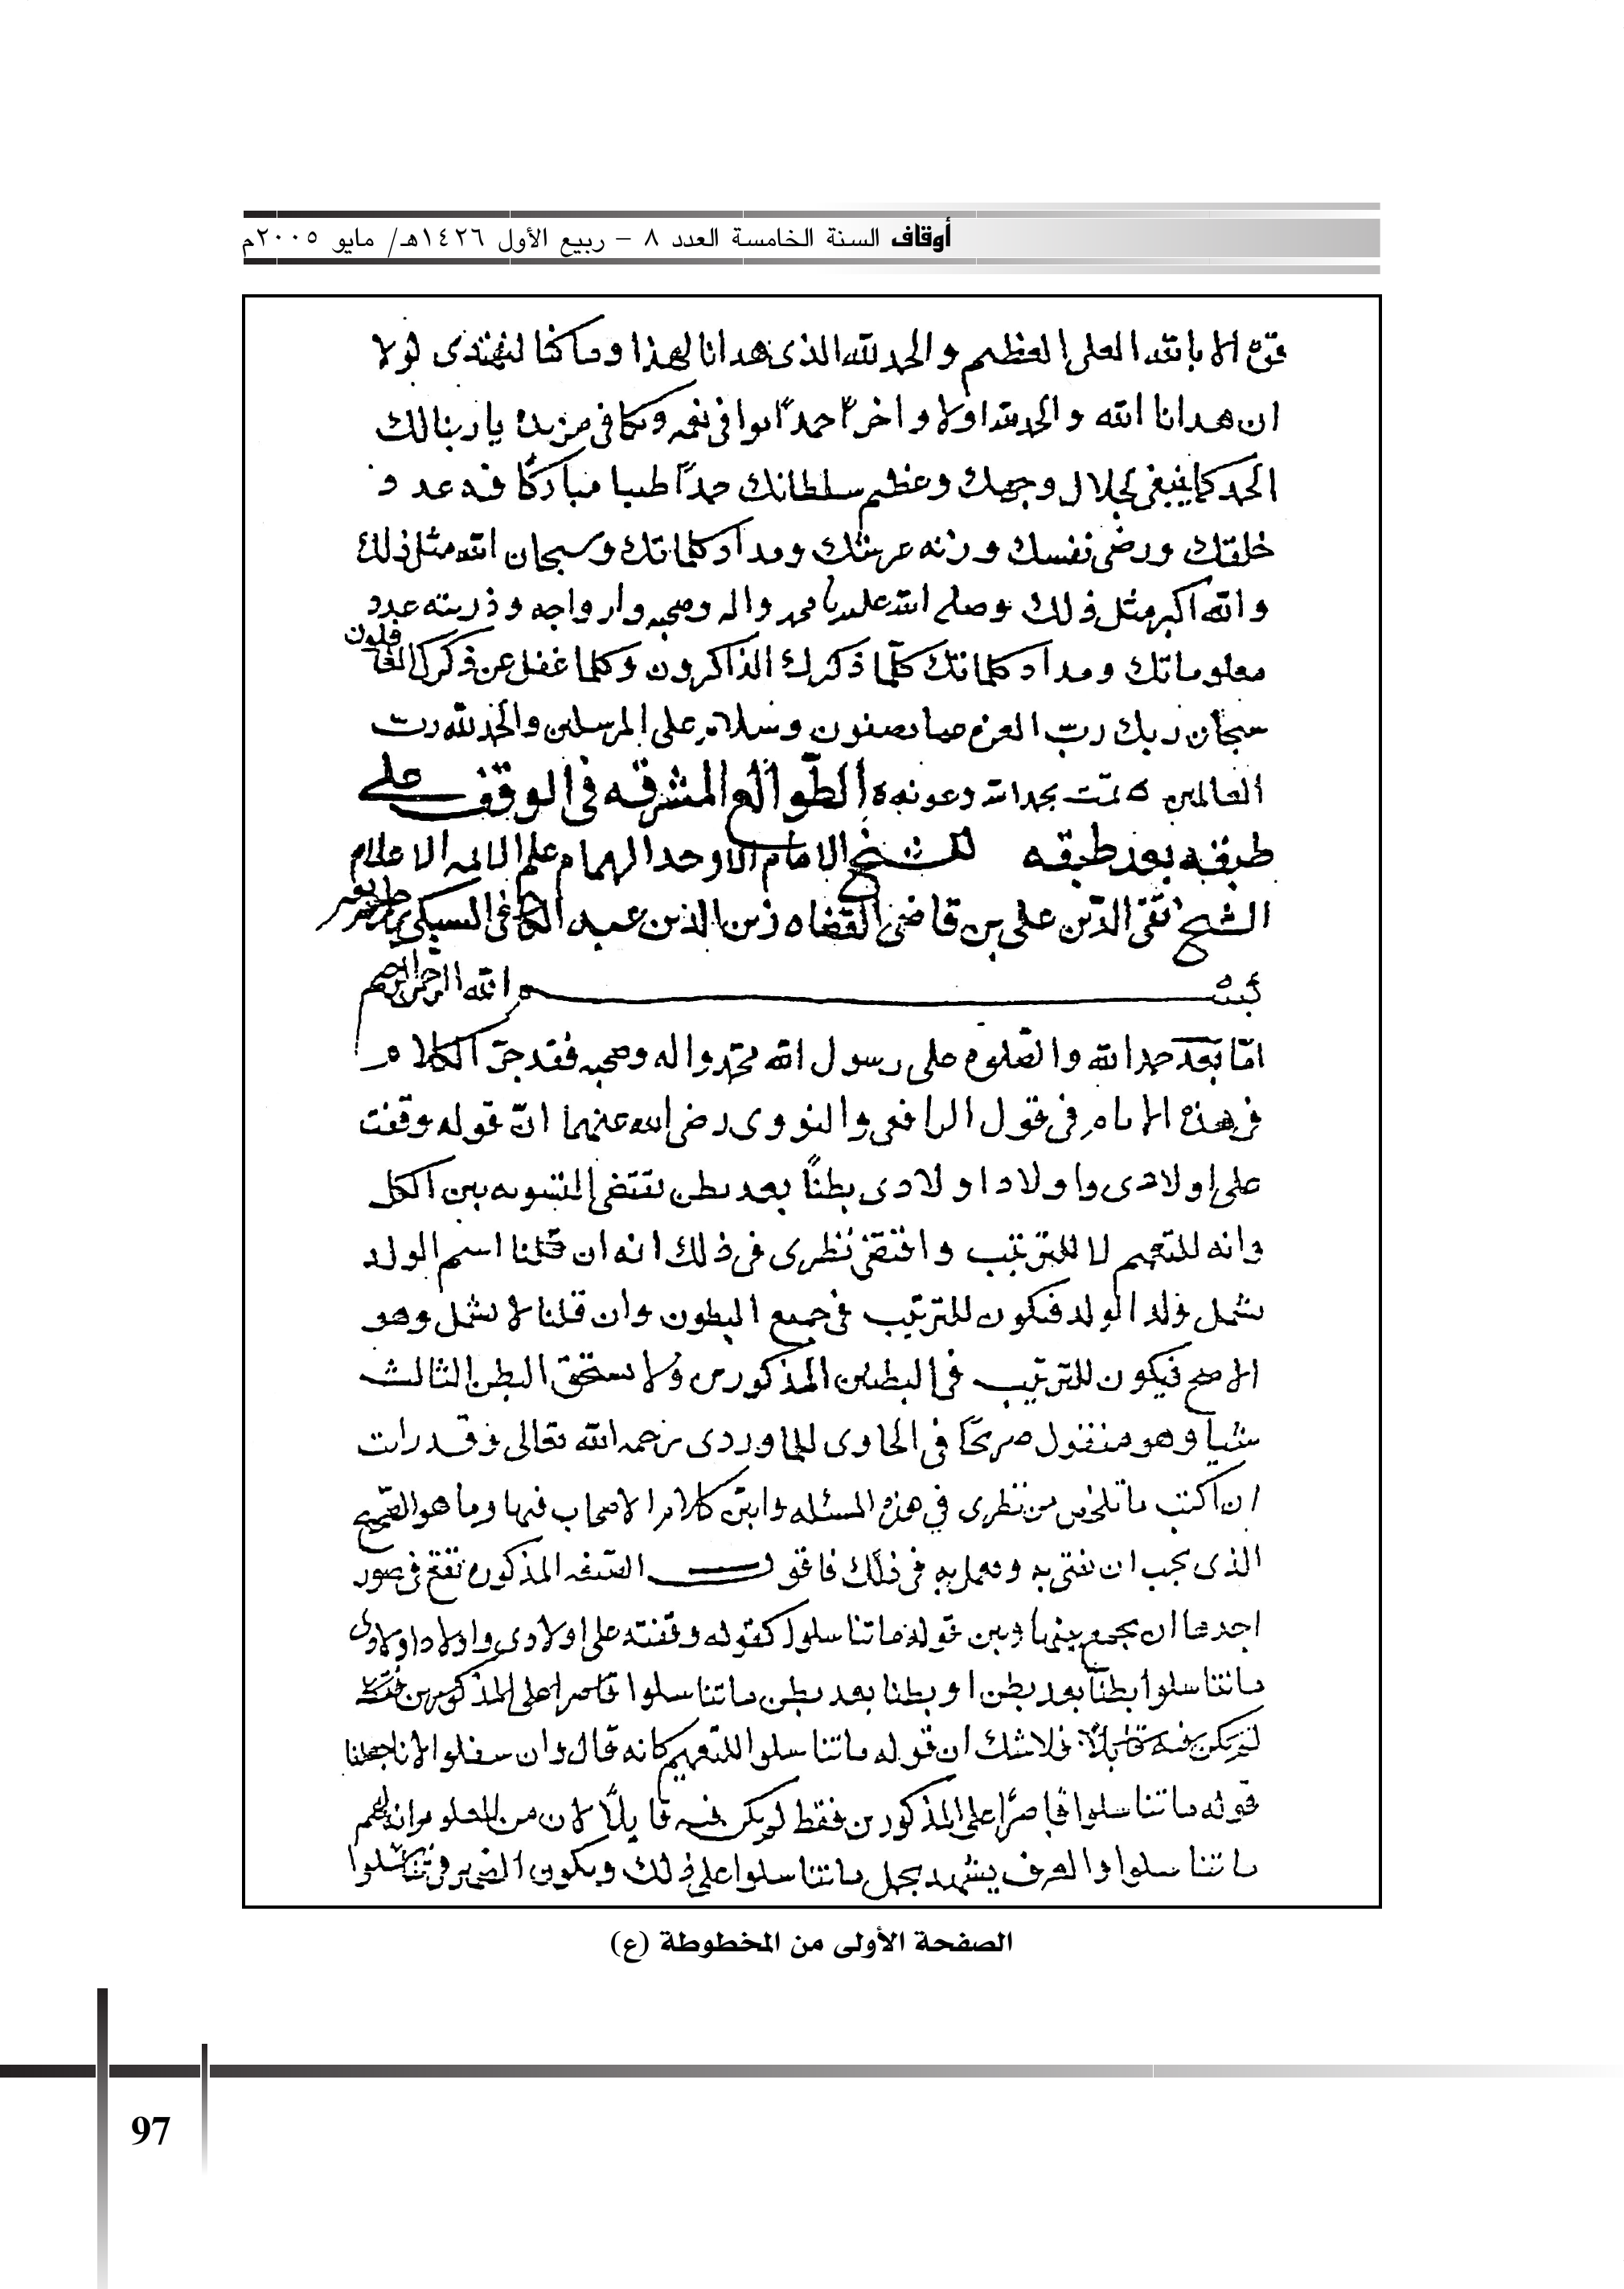 أوقاف السنة الخامسة العدد ٨ – ربيع الأول ١٤٢٦هـ/ مايو ٢٠٠٥م
قوة الا بالله العلى العظيم والحمد لله الذى هدانا لهذا وما كنا لنهتدى لولا
ان هدانا الله والحمد لله اولا واخرا حمدا يوافى نعمه ويكافى مزيده يا ربنا لك
الحمد كما ينبغى لجلال وجهك وعظيم سلطانك حمداً طيبا مباركا فيه عدد
خلقك ورضى نفسك وزنه عرشك ومداد كلماتك وسبحان الله مثل ذلك
والله اكبر مثل ذلك وصلى الله على سيدنا محمد واله وصحبه وازواجه وذريته عدد
معلوماتك ومداد كلماتك كلما ذكرك الذاكرون وكلما غفل عن ذكرك الغافلون
سبحان ربك ربّ العزه عما يصفون وسلام على المرسلين والحمد لله رب
العالمين تمت بحمد الله وعونه الطّوالع المشرقه فى الوقف على
طبقه بعد طبقه للشيخ الامام الاوحد الهمام علم الائمه الاعلام
الشيخ تقى الدّين على بن قاضى القضاه زين الدين عبد الكافى السبكى
بسم الله الرحمن الرحيم
امّا بعد حمد الله والصلوه على رسول الله محمّد واله وصحبه فقد جرى الكلام
فى هذه الايام فى قول الرافعى والنووى رضى الله عنهما انّ قوله وقفت
على اولادى واولاد اولادى بطناً بعد بطن يقتضى التسويه بين الكل
وانه للتعميم لا للترتيب واقتضى نظرى فى ذلك انه ان قلنا اسم الولد
يشمل ولد الولد فيكون للترتيب فى جميع البطون وان قلنا لا يشمل وهو
الاصح فيكون للترتيب فى البطنين المذكورين ولا يستحق البطن الثالث
شيا وهو منقول صريحاً فى الحاوى للماوردى رحمه الله تعالى وقد رايت
ان اكتب ما تلخص من نظرى فى هذه المسئله وابيّن كلام الاصحاب فيها وما هو الصّحيح
الذى يجب ان نفتى به ونعمل به فى ذلك فاقول الصّيغه المذكوره تقع فى صور
احدها ان يجمع بينها وبين قوله ما تناسلوا كقوله وقفته على اولادى واولاد اولادى
ما تناسلوا بطناً بعد بطن او بطنا بعد بطن ما تناسلوا قاصرا على المذكورين فقط
لم يكن فيه فلا شك ان قوله ما تناسلوا للتعميم كانه قال وان سفلوا لانا جعلنا
قوله ما تناسلوا قاصرًا على المذكورين فقط لم يكن فيه لان من المعلوم انه
ما تناسلوا والعرف يشهد بحمل ما تناسلوا على ذلك ويكون الضمير فى تناسلوا
الصفحة الأولى من المخطوطة (ع)
97